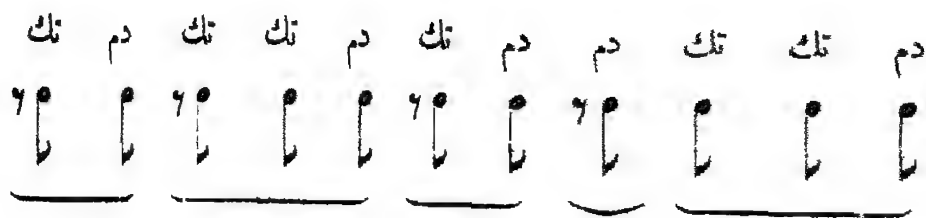 دم تك تك دم دم تك دم تك تك دم تك